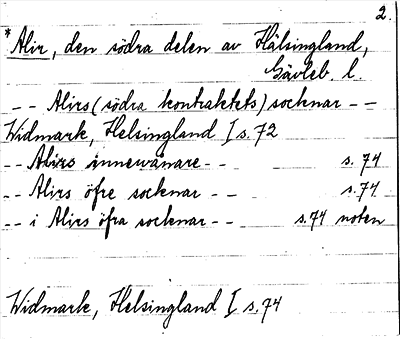 2.
*Alir, den södra delen av Hälsingland,
Gävleb. l.
-- Alirs (södra kontraktets) socknar --
Widmark, Helsingland I s. 72
-- Alirs innewånare -- s. 74
-- Alirs öfre socknar -- s. 74
-- i Alirs öfra socknar -- s. 74 noten
Widmark, Helsingland I s. 74